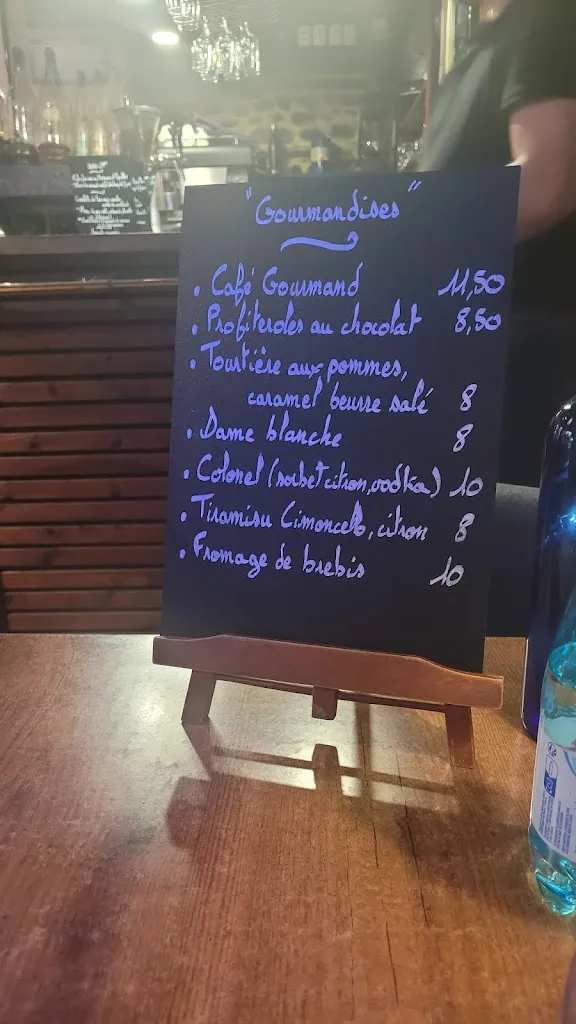 "Gourmandises"
• Café Gourmand 11,50
• Profiteroles au chocolat 8,50
• Tourtière aux pommes,
caramel beurre salé 8
• Dame blanche 8
• Colonel (sorbet citron, vodka) 10
• Tiramisu Limoncello, citron 8
• Fromage de brebis 10